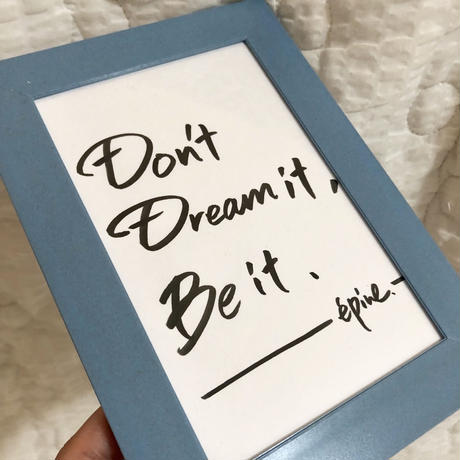 Don't
Dream it.
Be it.
épine.